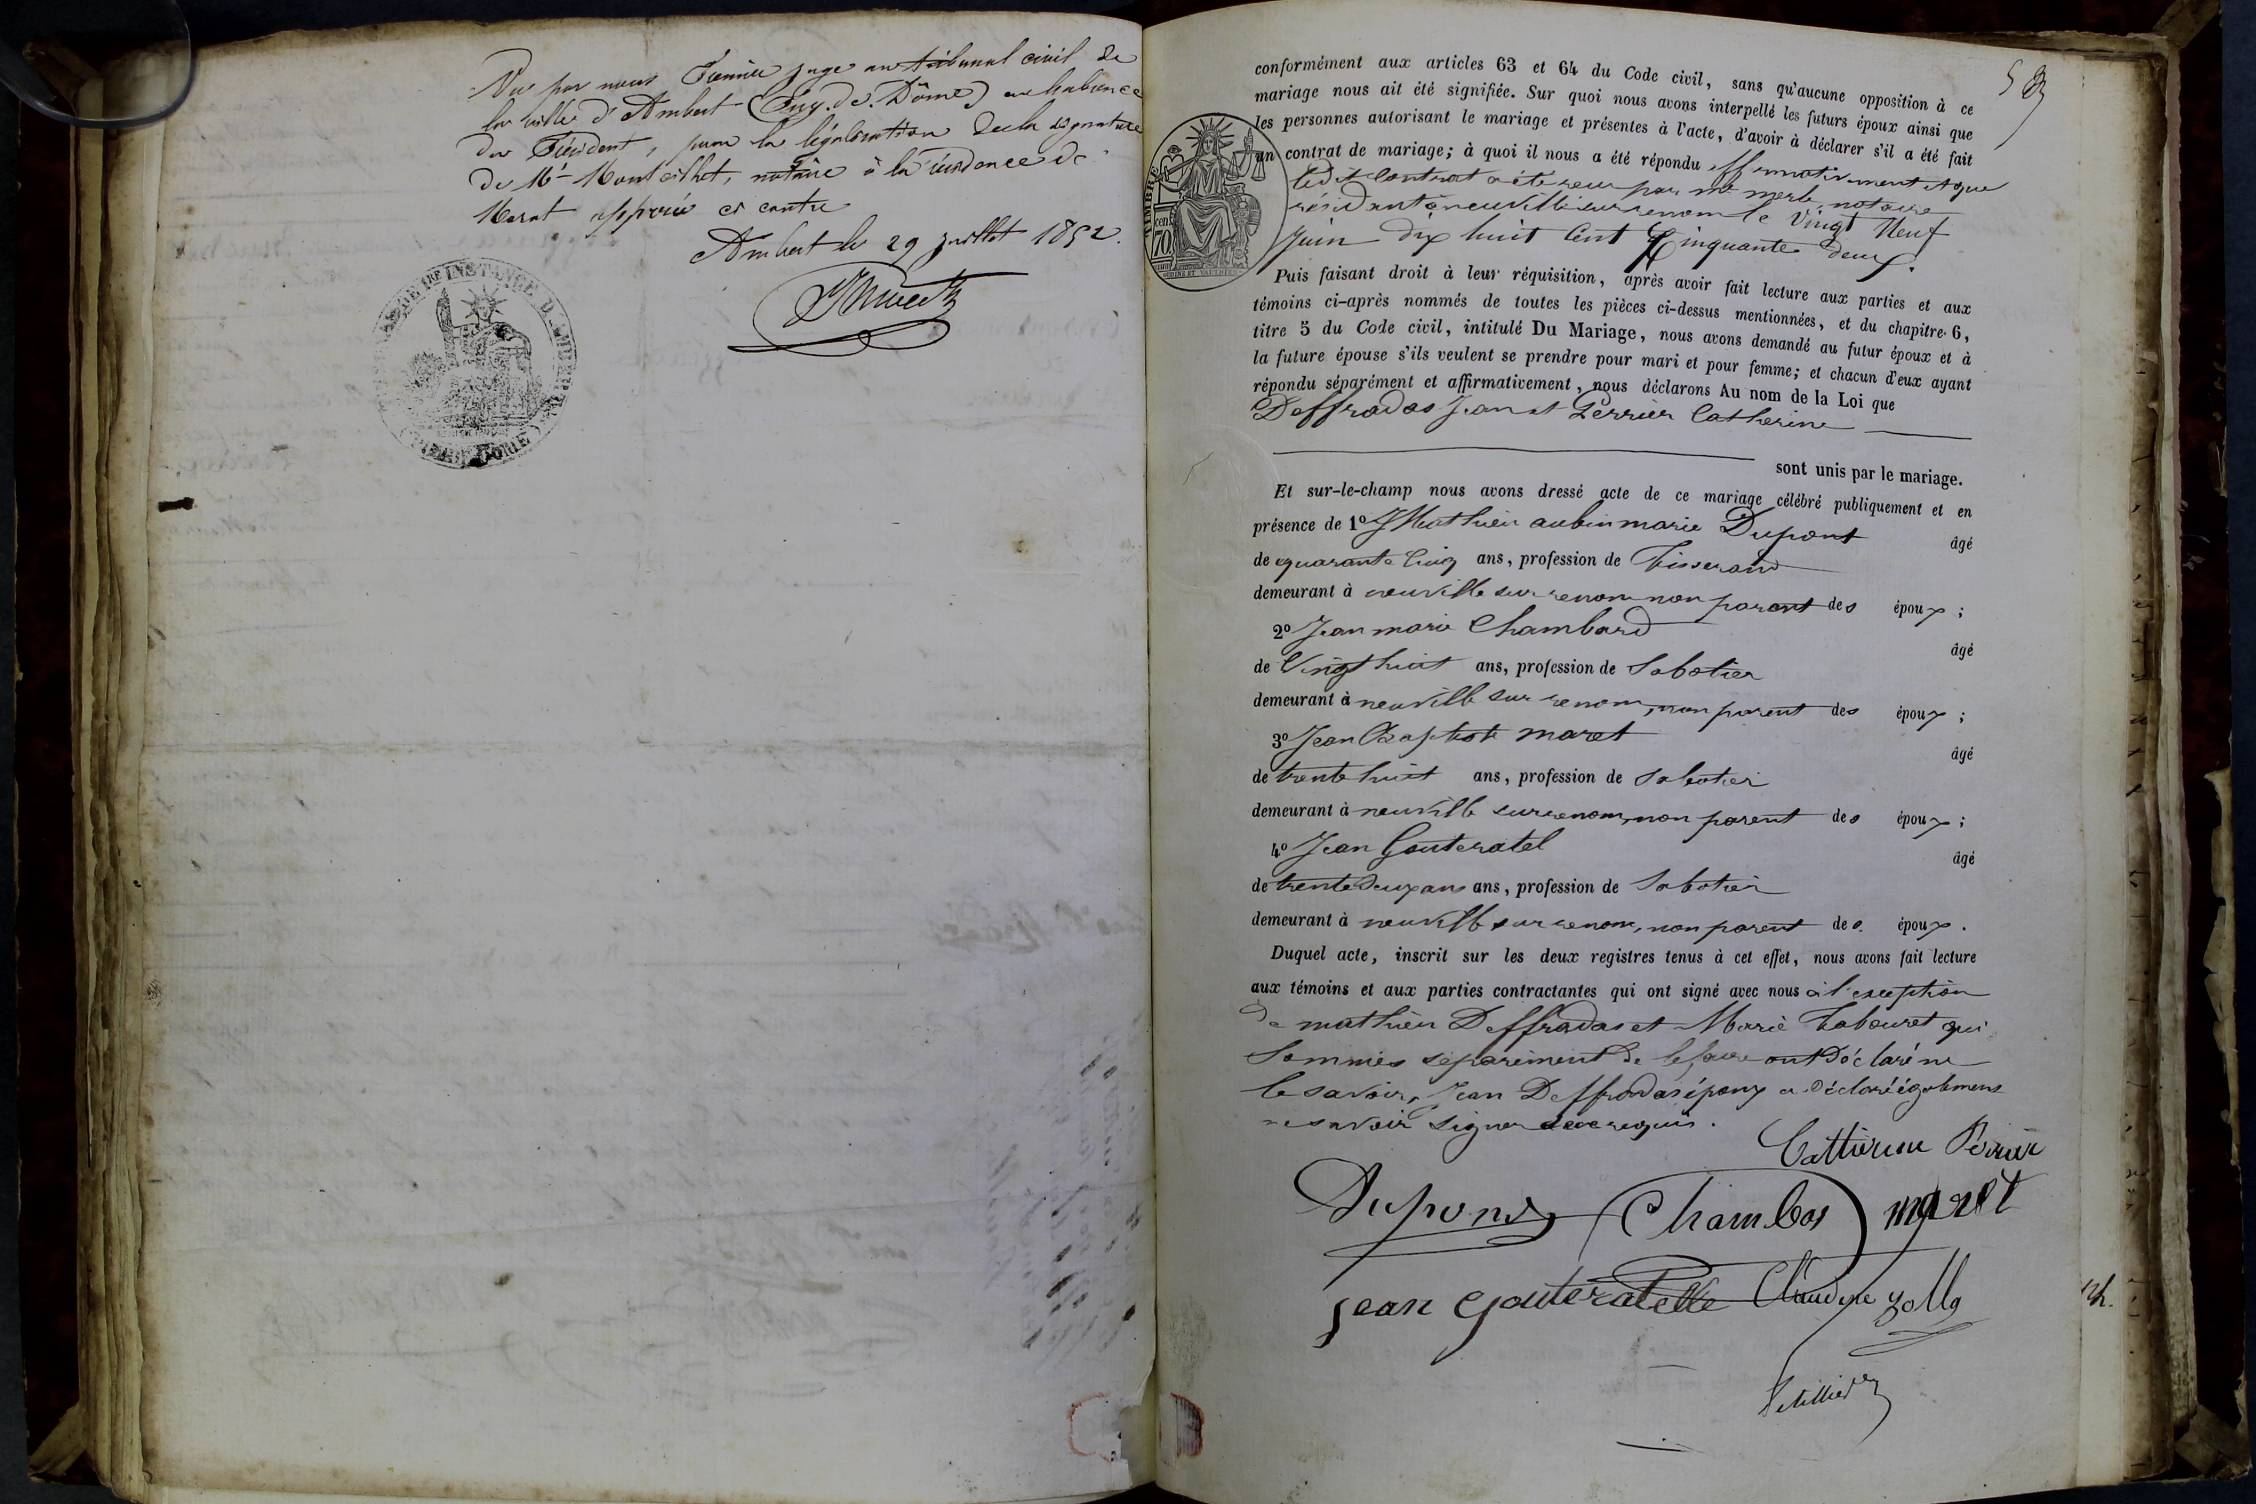 Vu par nous Premier juge au tribunal civil de
la ville d'Ambert (Puy-de-Dôme) en l'absence
du Président, pour la légalisation de la signature
de Me Montcilhet, notaire à la résidence de
Marat apposée ci contre
Ambert le 29 juillet 1852.
DE 1RE INSTANCE D'AMBERT
PUY DE DOME
53
conformément aux articles 63 et 64 du Code civil, sans qu'aucune opposition à ce
mariage nous ait été signifiée. Sur quoi nous avons interpellé les futurs époux ainsi que
les personnes autorisant le mariage et présentes à l'acte, d'avoir à déclarer s'il a été fait
un contrat de mariage; à quoi il nous a été répondu affirmativement et que
TIMBRE
70
cen.
ledit contrat a été reçu par me merle notaire
résidant à neuville sur renom le Vingt Neuf
Juin dix huit cent Cinquante deux.
Puis faisant droit à leur réquisition, après avoir fait lecture aux parties et aux
témoins ci-après nommés de toutes les pièces ci-dessus mentionnées, et du chapitre 6,
titre 5 du Code civil, intitulé Du Mariage, nous avons demandé au futur époux et à
la future épouse s'ils veulent se prendre pour mari et pour femme; et chacun d'eux ayant
répondu séparément et affirmativement, nous déclarons Au nom de la Loi que
Deffradas Jean et Perrier Catherine
sont unis par le mariage.
Et sur-le-champ nous avons dressé acte de ce mariage célébré publiquement et en
présence de 1o Mathieu aubin marie Dupont âgé
de quarante cinq ans, profession de Tisserand
demeurant à neuville sur renom non parent des époux;
2o Jean marie Chambard âgé
de Vingt huit ans, profession de Sabotier
demeurant à neuville sur renom, non parent des époux;
3o Jean Baptiste maret âgé
de trente huit ans, profession de Sabotier
demeurant à neuville sur renom, non parent des époux;
4o Jean Gouteratel âgé
de trente deux ans ans, profession de Sabotier
demeurant à neuville sur renom, non parent des époux.
Duquel acte, inscrit sur les deux registres tenus à cet effet, nous avons fait lecture
aux témoins et aux parties contractantes qui ont signé avec nous à l'exception
de mathieu Deffradas et Marie Tabouret qui
Sommés séparément de le faire ont déclaré ne
le savoir, Jean Deffradas époux a déclaré également
ne savoir signer de ce requis.
Catherine Perrier
Dupont Chambar maret
jean gouteratelle Claudine